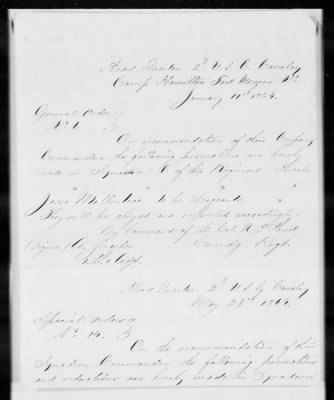 Head Quarter 2d U.S. C. Cavalry
Camp Hamilton Fort Monroe Va
January 11th 1864.
General Orders
No 1
On recommendation of their Company
Commanders the following promotions are hereby
made in Squadron C of this Regiment
Jesse to be Sergeant
They will be obeyed and respected accordingly.
By command of the Col.
(Signed) Comdg Regt.
Adjt
Head Quarter 2d U.S. C. Cavalry
May 23d 1864.
Special Orders
No. 14.
On the recommendation of their
Squadron Commander the following promotions
and reductions are hereby made in Squadron